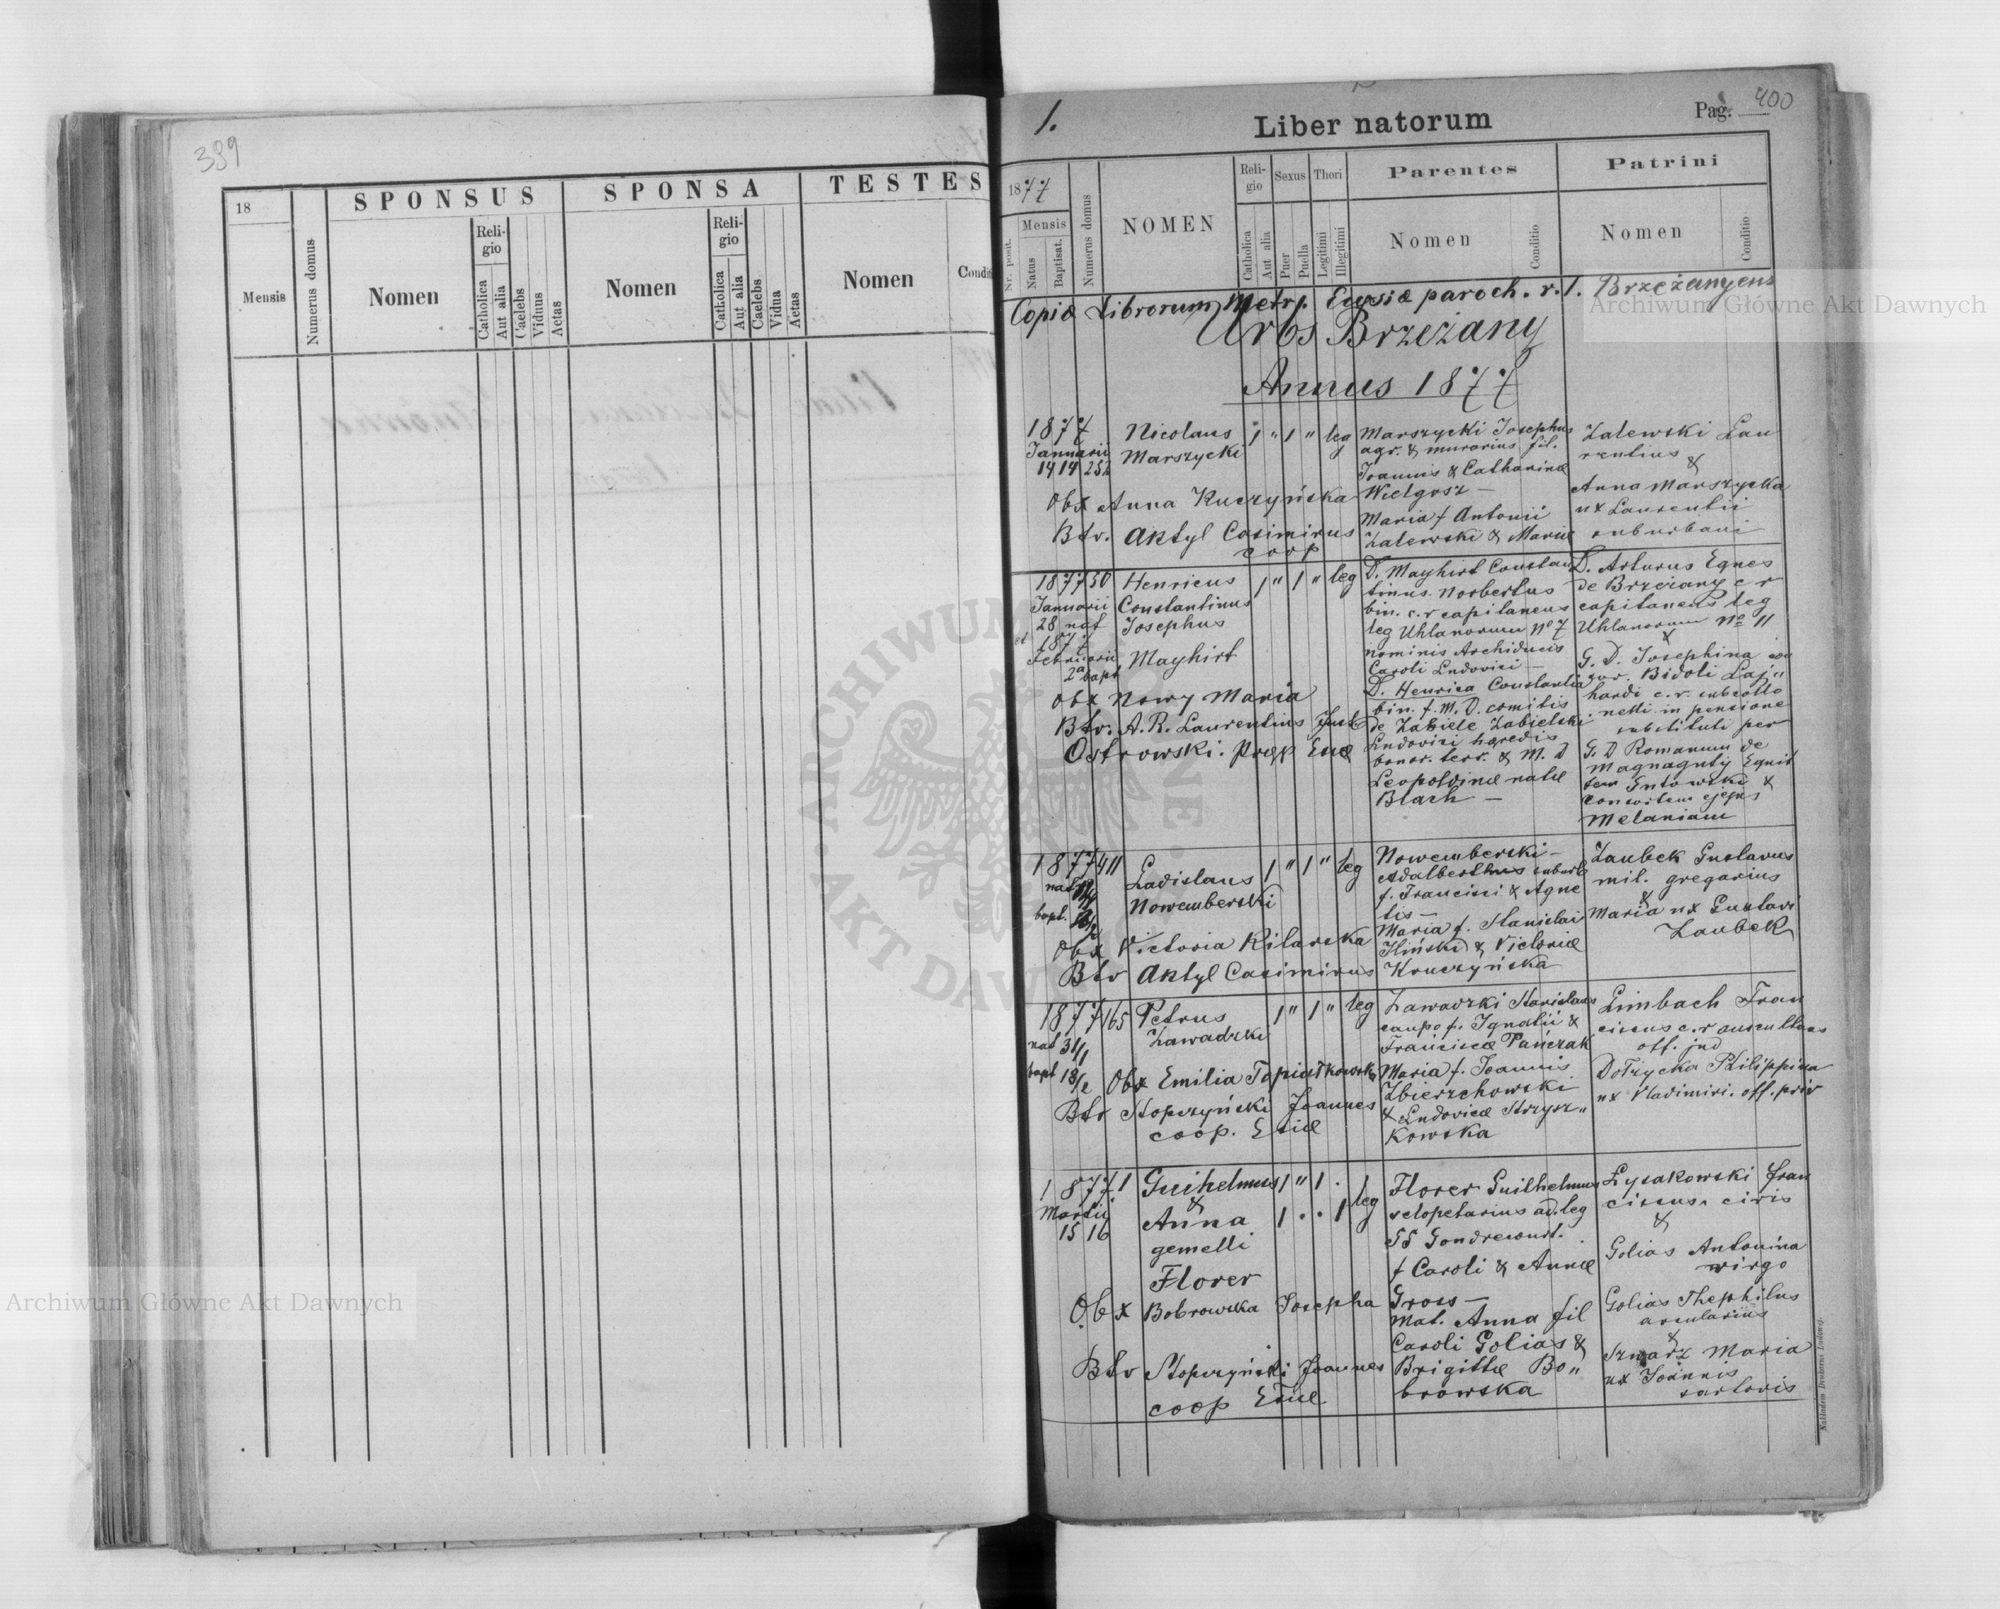 339
SPONSUS SPONSA TESTES
18
Mensis
Numerus domus
Nomen
Religio
Catholica
Aut alia
Caelebs
Viduus
Aetas
Nomen
Religio
Catholica
Aut alia
Caelebs
Vidua
Aetas
Nomen
1.
Liber natorum
Pag. 400
1877
Mensis
Nr. posit.
Natus
Baptisat.
Numerus domus
NOMEN
Religio
Catholica
Aut alia
Sexus
Puer
Puella
Thori
Legitimi
Illegitimi
Parentes
Nomen
Conditio
Patrini
Nomen
Conditio
Copiæ Librorum Metr. paroch. r. l. Brzeżanyens
Urbs Brzeżany
Annus 1877
1877
Januarii
14 14 252
Nicolaus
Marszycki
1 " 1 " leg
Obx Anna Kuczyńska
Btv. Aktyl Casimirus
coop
Marszycki Josephus
agr. & murarius fil.
Joannis & Catharinæ
Wielgosz —
Maria f Antonii
Zalewski & Mariæ
Zalewski Lau
rentius
&
Anna Marszycka
ux Laurentii
suburbani
1877 50
Januarii
28 nat
et 1877
Februarii
2a bapt
Henricus
Constantinus
Josephus
Mayhirt
1 " 1 " leg
Obx Nowy Maria
Btv. A. R. Laurentius Just
Ostrowski. præp Ecclæ
D. Mayhirt Constan
tinus Norbertus
bin. c. r capitaneus
leg Uhlanorum No 7
nominis Archiducis
Caroli Ludovici —
D. Henrica Constantia
bin. f. M. D. comitis
de Zabiele Zabielski
Ludovici hæredis
bonor. terr. & M. D
Leopoldinæ natæ
Blach —
D. Arturus Egnes
de Brzeżany c r
capitaneus leg
Uhlanorum No 11
&
G. D. Josephina
Bidoli Laj"
hardi c. r.
in pensione
substituti per
G. D Romanum de
Magnaguty Equit
tem Gutowski &
consortem ejus
Melaniam
1877 411
nat
bapt.
Ladislaus
Nowemberski
1 " 1 " leg
Obx Victoria Kilarska
Btv Aktyl Casimirus
Nowemberski —
Adalbertus suburb
f. Francisci & Agne
tis —
Maria f. Stanislai
Iliński & Victoriæ
Kruczyńska
Zaubek Gustavus
mil. gregarius
&
Maria ux Gustavi
Zaubek
1877 165
nat 31/1
bapt 18/2
Petrus
Zawadzki
1 " 1 " leg
Obx Emilia Topiatkowska
Btv Stopczyński Joannes
coop. Eccliæ
Zawadzki Stanislaus
caupo f. Ignatii &
Franciscæ Pańczak
Maria f. Joannis
Zbierzchowski
& Ludovicæ Strysz"
kowska
Limbach Fran
ciscus c. r auscultans
off. jud
Dołżycka Philippina
ux Vladimiri. off. priv
1877 1
Martii
15 16
Guihelmus
&
Anna
gemelli
Florer
1 " 1 .
1 . . 1 leg
Obx Bobrowska Josepha
Btv Stopczyński Joannes
coop Eccliæ
Florer Guilhelmus
sclopetarius ad leg
55 Gondrecourt.
f Caroli & Annæ
Gross —
Mat. Anna fil
Caroli Golias &
Brigittæ Bo"
browska
Łysakowski Fran
ciscus. civis
&
Golias Antonina
virgo
Golias Thephilus
arcularius
&
Szwarz Maria
ux Joannis
sartoris
Archiwum Główne Akt Dawnych
Archiwum Główne Akt Dawnych
ARCHIWUM GŁÓWNE AKT DAWNYCH